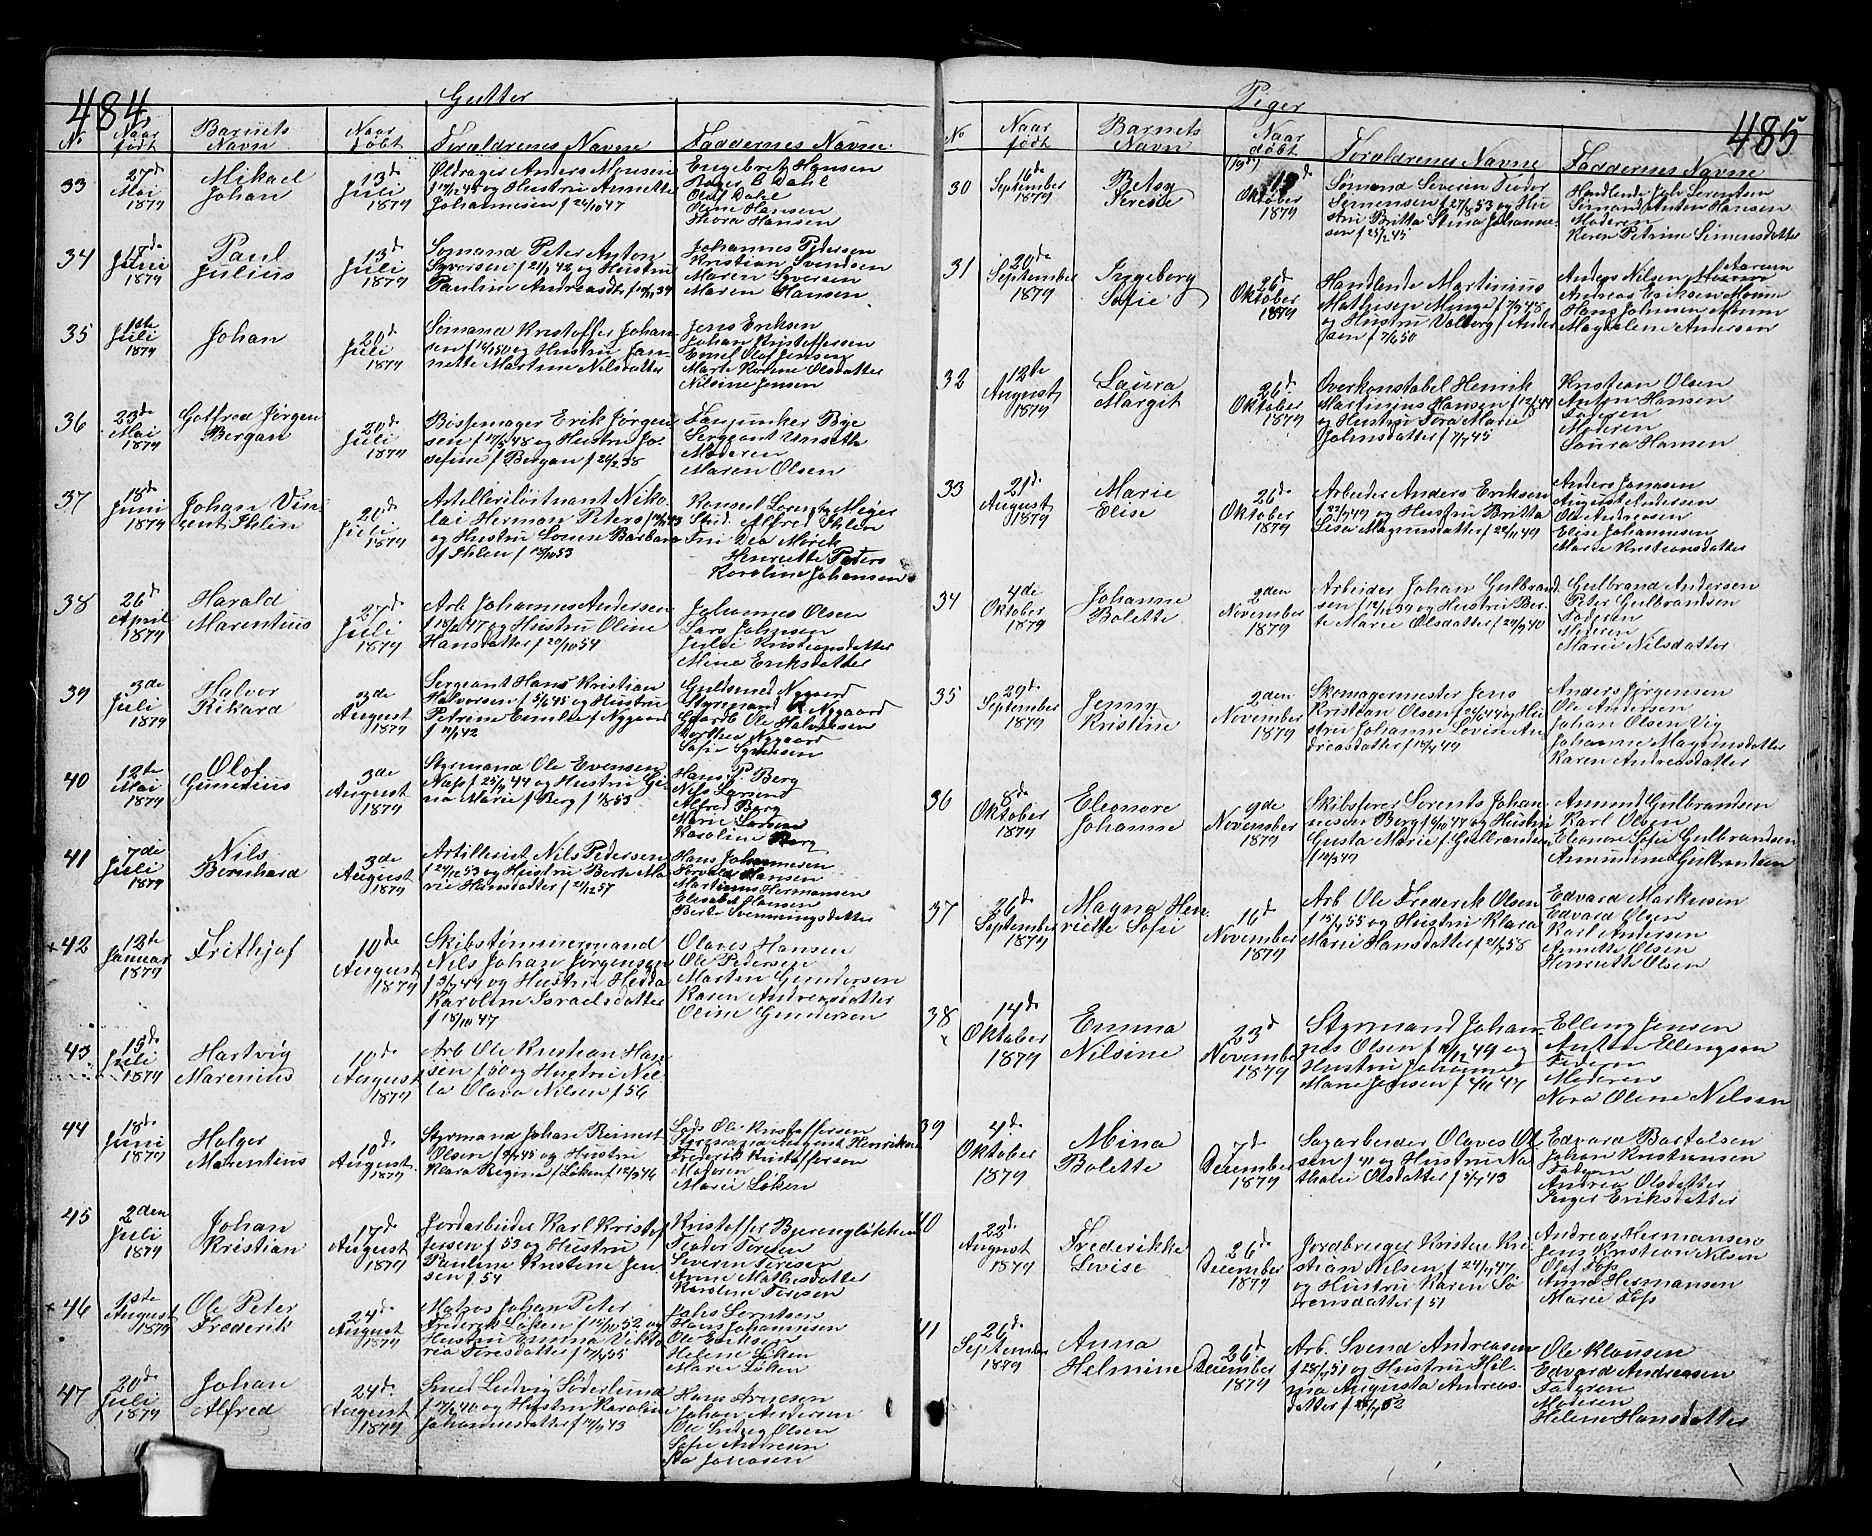 484
Gutter
No
Naar født
Barnets Navn
Naar døbt
Forældrenes Navne
Faddernes Navne
33
27de Mai 1879
Mikael Johan
13de Juli 1879
Oldrager Anders
f 19/12 48 og Hustru Annette
Johannesen f 24/10 47
Engebret Hansen
Inger B Dahl
Oluf Dahl
Oline Hansen
Thora Hansen
34
Juni 1879
Paul Julius
13de Juli 1879
Sømand Peter Anton
Syversen f 21/1 42 og Hustru
Pauline Andreasdt
Johannes Pedersen
Kristian Svendsen
Maren Syversen
Maren Hansen
35
1ste Juli 1879
Johan
20de Juli 1879
Sømand Kristoffer Johan-
sen og Hustru Jan-
nette Martine Nilsdatter
Jens Eriksen
Johan Kristoffersen
Emil Olaf Jensen
Marte Karine Olsdatter
Nilsine Jensen
36
23de Mai 1879
Gotfred Jørgen Bergan
20de Juli 1879
Bøssemager Erik Jørgen-
sen f 48 og Hustru Jo-
sefine f Bergan f 26/2 38
Fanejunker Bye
Sergeant
Moderen
Maren Olsen
37
18de Juni 1879
Johan Vin-
cent Ihlen
20de Juli 1879
Artilleriløitnant Niko-
lai Herman Peters
og Hustru Barbara
f Ihlen f 18/10 53
Konsul Lorentz Meyer
Stud. Alfred Ihlen
Henriette Peters
Karoline Johansen
38
26de April 1879
Harald Marentius
27de Juli 1879
Arb Johannes Andersen
f 47 og Hustru Oline
Hansdatter f 20/10 54
Johannes Olsen
Lars Johnsen
Julai Kristiansdatter
Mina Eriksdatter
39
3de Juli 1879
Halvor Rikard
3de August 1879
Sergeant Hans Kristian
Halvorsen f 5/6 45 og Hustru
Petrine Emilie f Nygaard
f 11/1 42
Guldsmed Nygaard
Styrmand Nygaard
Ole Halvorsen
Dorthea Nygaard
Sofie Syversen
40
12te Mai 1879
Olof Gunerius
3de August 1879
Styrmand Ole Evensen
Næss f 25/9 44 og Hustru Gi-
na Marie f Berg f 1855
Hans P. Berg
Nils Larsen
Alfred Berg
Marie Larsen
Karoline Berg
41
7de Juli 1879
Nils Bernhard
3de August 1879
Artillerist Nils Pedersen
f 29/12 53 og Hustru Berte Ma-
rie Hansdatter f 21/12 57
Hans Johannesen
Torvald Hansen
Martinus Hermansen
Elisabet Hansen
Berte Svenningsdatter
+42
12te Januar 1879
Frithjof
10de August 1879
Skibstømmermand
Nils Johan Jørgensen
f 3/7 44 og Hustru Hedda
Karoline Israelsdatter
f 18/10 47
Olaves Hansen
Ole Pedersen
Martin Gundersen
Karen Andreasdatter
Oline Gundersen
43
15de Juli 1879
Hartvig Marenius
10de August 1879
Arb Ole Kristian Han-
sen f 50 og Hustru Nil-
la Olava Nilsen f 56
44
18de Juni 1879
Holger Marentius
10de August 1879
Styrmand Johan Reinert
Olsen og Hustru
Klara Regine f Løken f 12/3 46
Lods Ole Kristoffersen
Styrmand August Henriksen
Frederik Kristoffersen
Moderen
Marie Løken
45
2den Juli 1879
Johan Kristian
17de August 1879
Jordarbeider Karl Kristof-
fersen f 53 og Hustru
Pauline Kristine Jen-
sen f 54
Kristoffer Bjerengløkken
Teodor Toresen
Severin Toresen
Anne Mathisdatter
Karoline Toresen
+46
1ste August 1879
Ole Peter Frederik
24de August 1879
Matros Johan Peter
Frederik Løken f 15/10 52 og
Hustru Emma Vikto-
ria Toresdatter f 17/4 55
Jahs Lorntsen
Hans Johannesen
Ole Eriksen
Helene Løken
Marie Løken
47
20de Juli 1879
Johan Alfred
24de August 1879
Smed Ludvig Söderlund
f 17/2 40 og Hustru Karoline
Johannesdatter f 43
Hans Arnesen
Johan Andersen
Ole Ludvig Olsen
Sofie Andersen
Ida Johansen
485
Piger
No
Naar født
Barnets Navn
Naar døbt
Forældrenes Navne
Faddernes Navne
30
16de September 1879
Betsy Terese
(19de) Oktober 1879
Sømand Severin Teodor
Sørensen f 27/8 53 og Hu-
stru Britta Stina Johanne-
sen f 25/2 45
Handlende Jahs Lorentsen
Sømand Anton Hansen
Moderen
Karen Petrine Simensdatter
31
20de September 1879
Ingeborg Sofie
26de Oktober 1879
Handlende Martinius
Mathisen Minge f 7/9 48
og Hustru Valborg f Ander-
sen f 7/6 50
Anders Nilsen
Andreas Eriksen Moum
Hans Johnsen Moum
Magdalene Andersen
32
12te August 1879
Laura Margit
26de Oktober 1879
Overkonstabel Henrik
Martinius Hansen f 12/8 44
og Hustru Tora Marie
Johnsdatter f 7/7 45
Kristian Olsen
Anton Hansen
Faderen
Moderen
Laura Hansen
33
21de August 1879
Marie Elise
26de Oktober 1879
Arbeider Anders Eriksen
f 22/3 49 og Hustru Britta
Lisa Magnusdatter f 29/11 49
Anders Jonassen
August Andersen
Ole Andreasen
Elise Johannesen
Marie Kristiansdatter
34
4de Oktober 1879
Johanne Bolette
2den November 1879
Arbeider Johan Gulbrand-
sen f 12/12 39 og Hustru Ber-
te Marie Olsdatter f 29/9 40
Gulbrand Andersen
Peter Gulbrandsen
Faderen
Moderen
Marie Nilsdatter
35
29de September 1879
Jenny Kristine
2den November 1879
Skomagermester Jens
Kristian Olsen f 22/6 47 og Hu-
stru Johanne Lovise An-
dreasdatter f 49
Anders Jørgensen
Ole Andersen
Johan Olsen Vig
Johanne Magnusdatter
Karen Andreasdatter
36
8de Oktober 1879
Eleonore Johanne
9de November 1879
Skibsfører Lorents Johan-
nesen Berg f 6/10 47 og Hustru
Gusta Marie f Gulbrandsen
f 12/3 47
Amund Gulbrandsen
Karl Olsen
Eleonore Sofie Gulbrandsen
Ammine Gulbrandsen
37
26de September 1879
Magna Hen-
riette Sofie
16de November 1879
Arb Ole Frederik Olsen
f 15/1 55 og Hustru Klara
Marie Hansdatter f 21/2 58
Edvard Markusen
Edvard Olsen
Karl Andersen
Annette Olsen
Henriette Olsen
38
14de Oktober 1879
Emma Nilsine
23de November 1879
Styrmand Johan-
nes Olsen f 49 og
Hustru Johanne
Marie Jensen f 4/11 47
Elling Jensen
Anton Ellingsen
Faderen
Moderen
Nora Oline Nilsen
39
4de Oktober 1879
Mina Bolette
7de December 1879
Sagarbeider Olaves Ol-
sen f 41 og Hustru Na-
thalie Olsdatter f 5/1 43
Edvard Bartolsen
Johan Kristiansen
Faderen
Andrea Olsdatter
Inger Eriksdatter
40
22de August 1879
Frederikke Lovise
26de December 1879
Jordbruger Kristen Kri-
stian Nilsen f 24/1 47
og Hustru Karen Sø-
rensdatter f 51
Andreas Hermansen
Jens Kristian Nilsen
Olaf Foss
Anna Hermansen
Marie Foss
41
26de September 1879
Anna Helmine
26de December 1879
Arb. Svend Andreasen
f 28/7 51 og Hustru Hel-
ma Augusta Andreas-
datter f 52
Ole Klausen
Edvard Andreasen
Faderen
Moderen
Helene Hansdatter